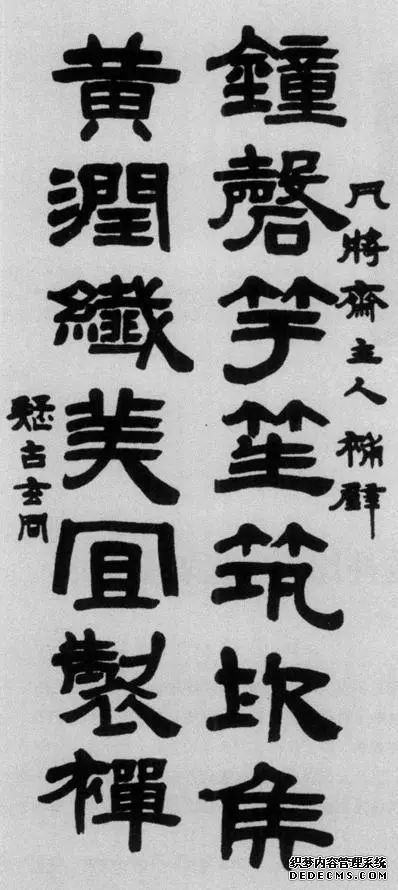 凡將齋主人補壁
鐘磬竽笙筑坎矦
黃潤纖美宜製襌
疑古玄同
织梦内容管理系统
DEDECMS.COM